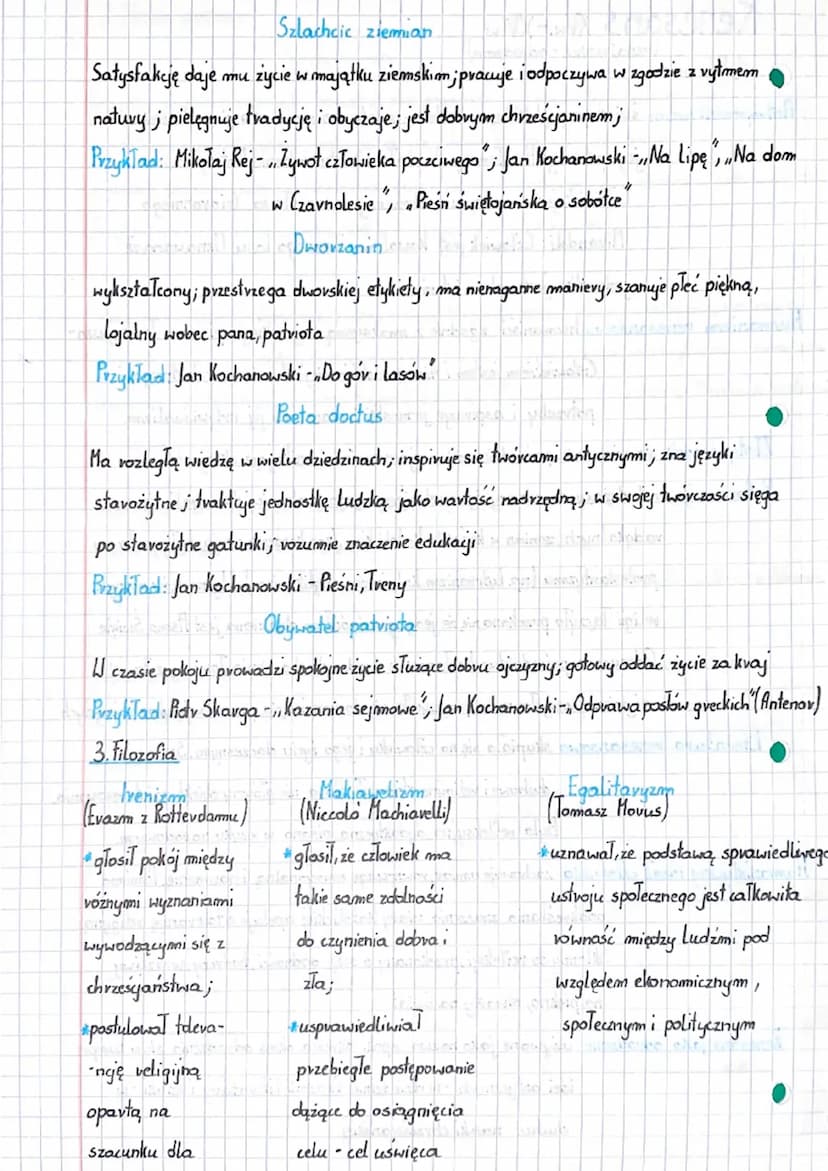 Szlachcic ziemian
Satysfakcję daje mu życie w majątku ziemskim; pracuje i odpoczywa w zgodzie z rytmem
natury; pielęgnuje tradycję i obyczaje; jest dobrym chrześcjaninem;
Przykład: Mikołaj Rej - „Żywot człowieka poczciwego"; Jan Kochanowski - „Na lipę", „Na dom
w Czarnolesie", „Pieśń świętojańska o sobótce"
Dworzanin
wykształcony; przestrzega dworskiej etykiety, ma nienaganne maniery, szanuje płeć piękną,
lojalny wobec pana, patriota
Przykład: Jan Kochanowski - „Do gór i lasów"
Poeta doctus
Ma rozległą wiedzę w wielu dziedzinach; inspiruje się twórcami antycznymi; zna języki
starożytne; traktuje jednostkę ludzką jako wartość nadrzędną; w swojej twórczości sięga
po starożytne gatunki; rozumie znaczenie edukacji
Przykład: Jan Kochanowski - Pieśni, Treny
Obywatel patriota
W czasie pokoju prowadzi spokojne życie służące dobru ojczyzny; gotowy oddać życie za kraj
Przykład: Piotr Skarga - „Kazania sejmowe"; Jan Kochanowski - „Odprawa posłów greckich" (Antenor)
3. Filozofia
Irenizm
(Erazm z Rotterdamu)
*głosił pokój między
różnymi wyznaniami
wywodzącymi się z
chrześcjaństwa;
*postulował tolera-
-ncję religijną
opartą na
szacunku dla
Makiawelizm
(Niccoló Machiavelli)
*głosił, że człowiek ma
takie same zdolności
do czynienia dobra i
zła;
*usprawiedliwiał
przebiegłe postępowanie
dążące do osiągnięcia
celu - cel uświęca
Egalitaryzm
(Tomasz Morus)
*uznawał, że podstawą sprawiedliwego
ustroju społecznego jest całkowita
równość między ludźmi pod
względem ekonomicznym,
społecznym i politycznym